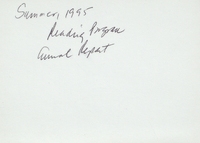 Summer, 1995
Reading Program
Annual Report